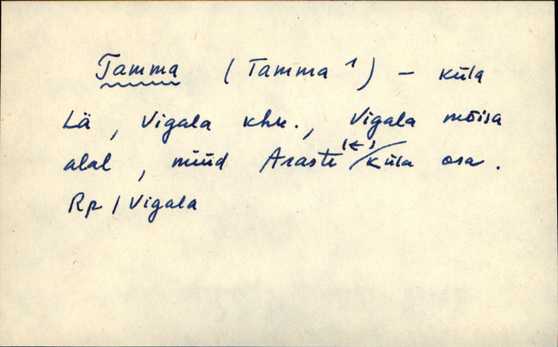 Tamma (Tamma 1) - küla
Lä, Vigala khk., Vigala mõisa
alal, nüüd Araste küla osa.
Rp / Vigala